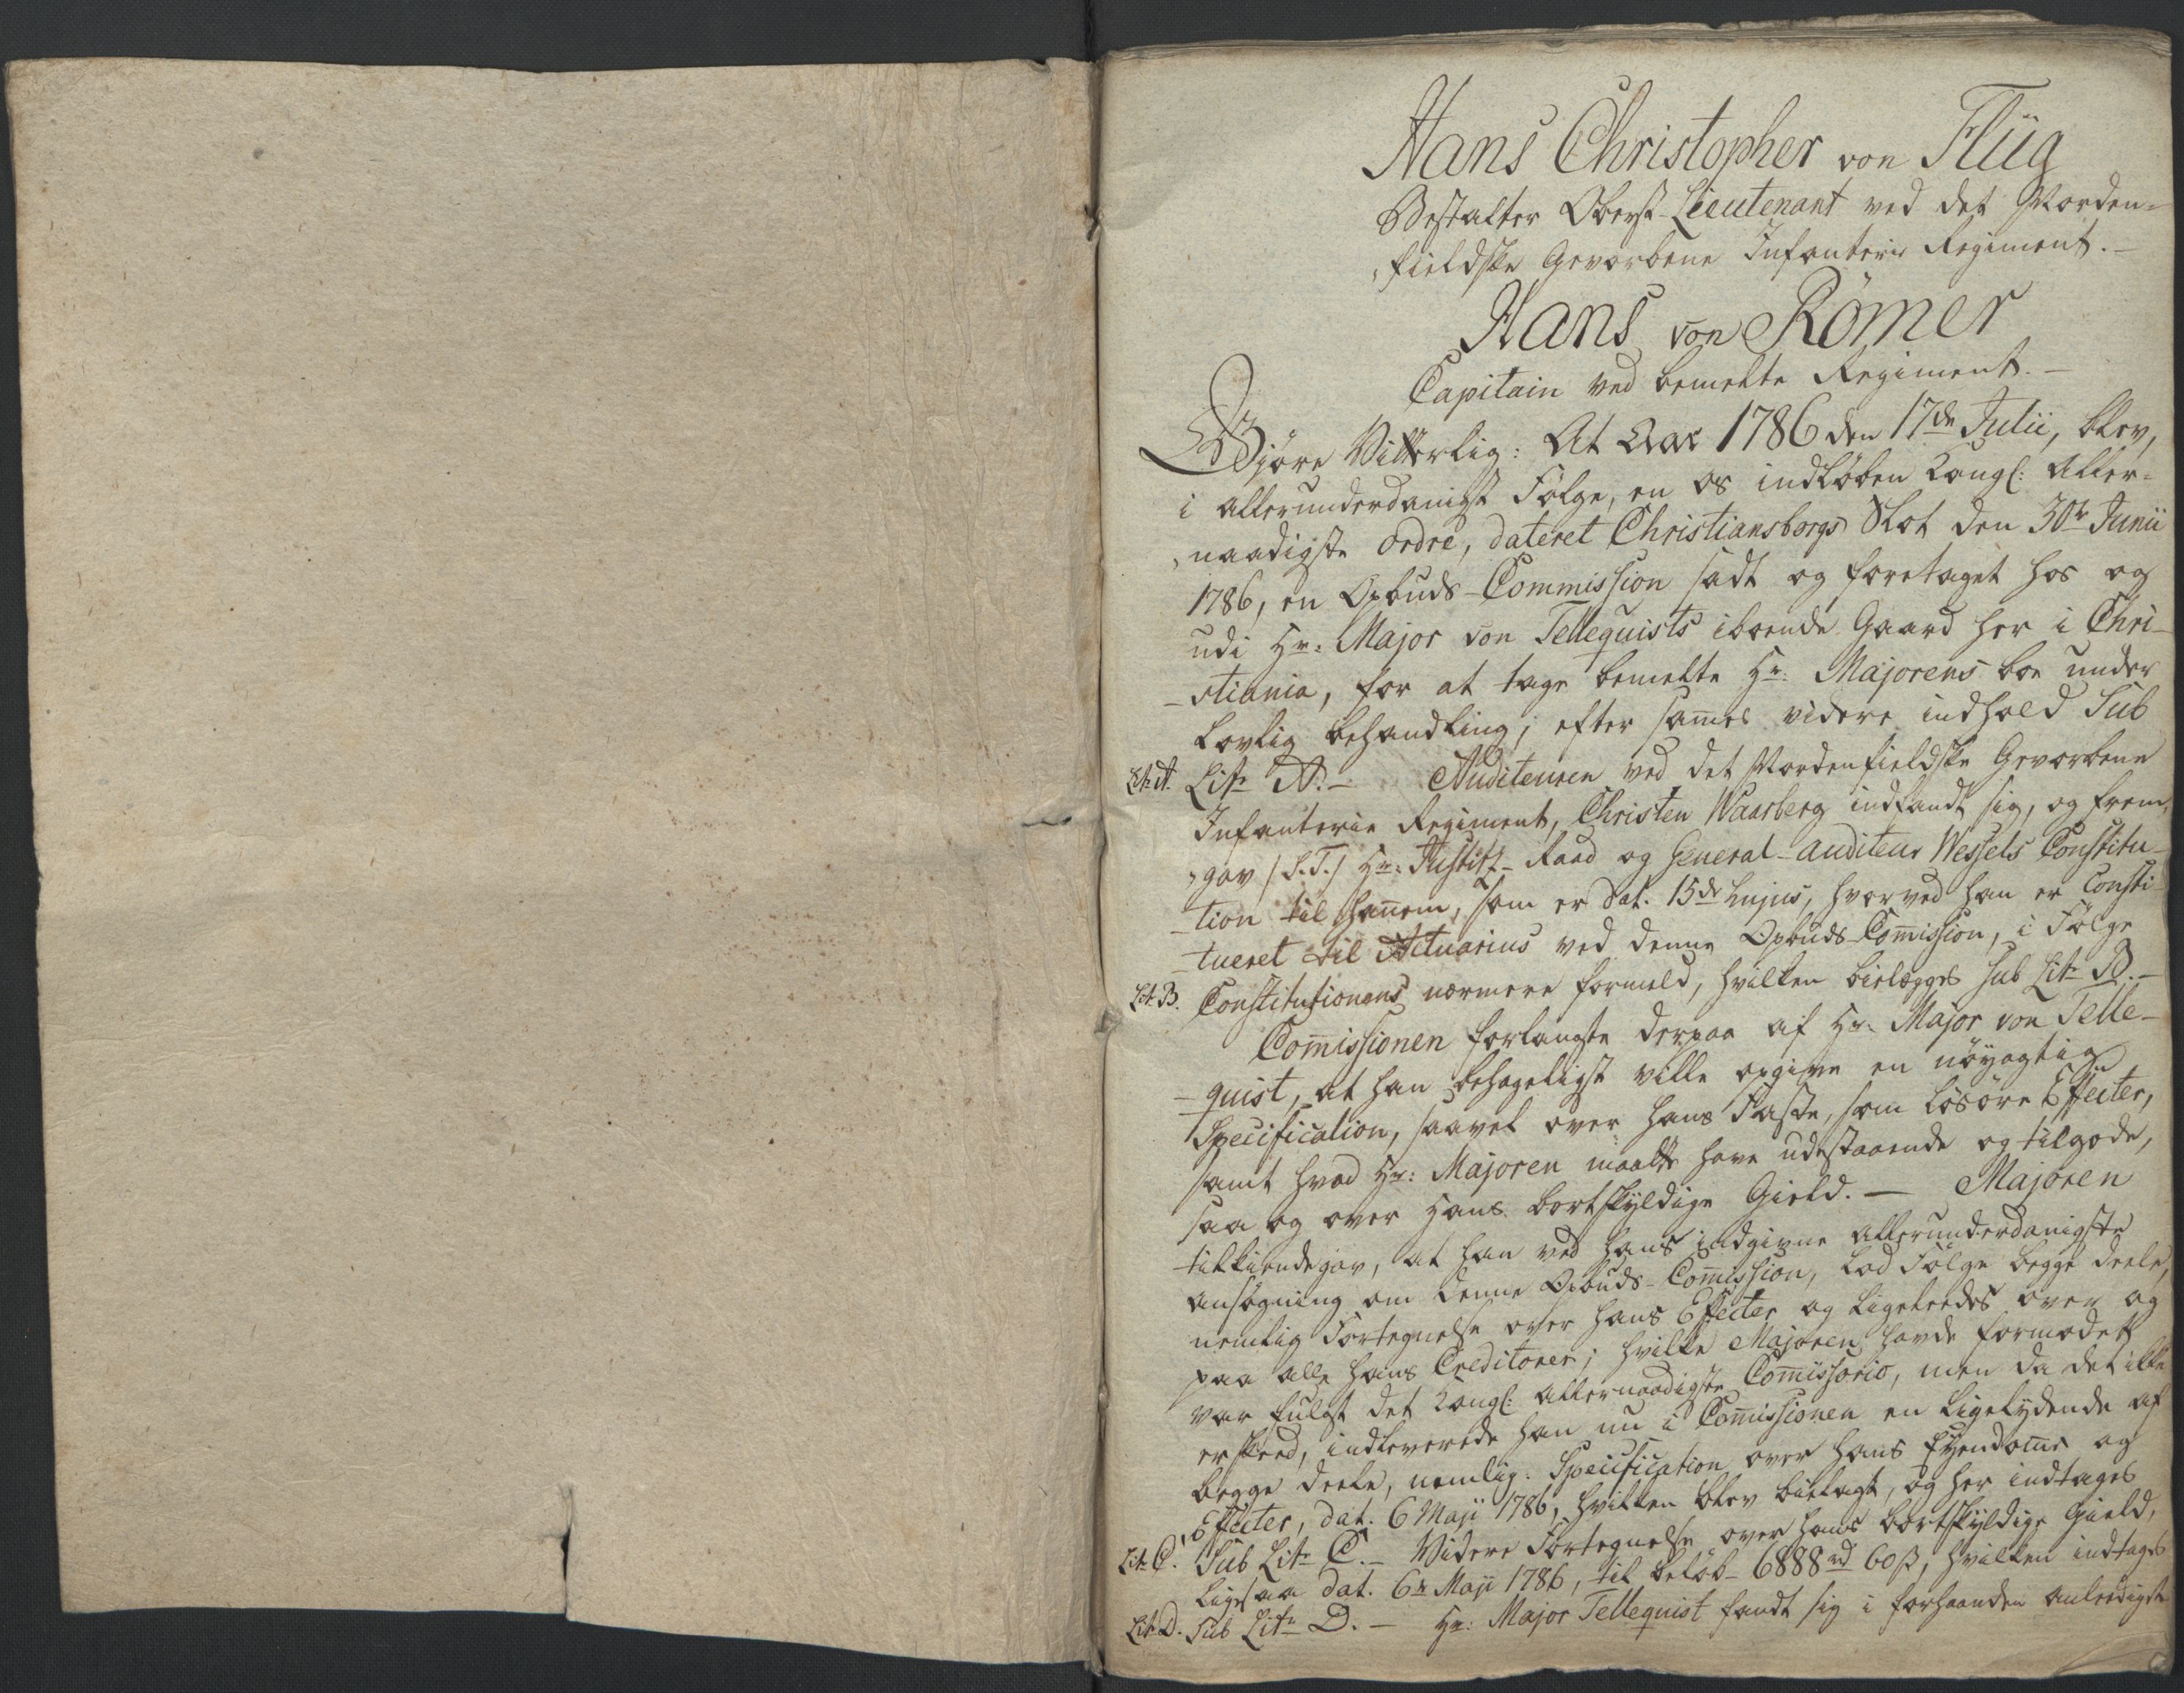 Hans Christopher von Flüg
Bestalter Oberst-Lieutenant ved det Norden-
fieldske Gevorbene Infanterie Regiment.-
Hans von Römer
Capitain ved bemelte Regiment.-
Giöre Vitterlig: At Aar 1786 den 17de Julii, blev,
i allerunderdanigst Følge, en os indløben Kongl: Aller-
naadigste ordre, dateret Christiansborgs Slot den 30te Junii
1786, en Opbuds-Commission sadt og foretaget hos og
udi Hr: Major von Tellequists iboende Gaard her i Chri-
-stiania, for at tage bemelte Hr: Majorens boe under
Lovlig behandling; efter sam̄es videre indhold Sub
Lit: A. Litr A.- Auditeuren ved det Nordenfieldske Gevorbene
Infanterie Regiment, Christen Waarberg indfandt sig, og frem-
gav /:S.T./ Hr: Justits-Raad og General-auditeur Wessels Constitu-
-tion til han̄em, som er dat. 15de hujus, hvorved han er Consti-
-tueret til Actuarius ved denne Opbuds-Com̄ission, i Følge
Lit. B. Constitutionens nærmere formeld, hvilken bielægges sub Litr B.-
Com̄issionen forlangte derpaa af Hr: Major von Telle-
-quist, at han behageligst ville opgive en nöyagtig
Specification, saavel over hans Faste, som Løsöre Effecter,
samt hvad Hr: Majoren maatte have udestaaende og tilgode,
saa og over Hans bortskyldige Gield. — Majoren
tilkiendegav, at han ved hans indgivne allerunderdanigste
ansøgning om denne Opbuds-Com̄ission, lod Følge begge deele,
nemlig Fortegnelse over hans Effecter og ligeleedes over og
paa alle hans Creditorer; hvilke Majoren havde formodet
var fulgt det Kongl: allernaadigste Com̄issorio, men da det ikke
er skeed, indleverede han nu i Com̄issionen en ligelydende af
begge deele, nemlig: Specification over hans Eyendom̄e og
Effecter, dat. 6 Maji 1786, hvilken blev bielagt, og her indtages
Lit: C. Sub Litr C.- Videre Fortegnelse over hans bortskyldige Gield,
ligesaa dat. 6te Maji 1786, til beløb- 6888 rd 60 ß, hvilken indtages
Lit: D. Sub Litr D.- Hr: Major Tellequist fandt sig i forhaanden anleedigst